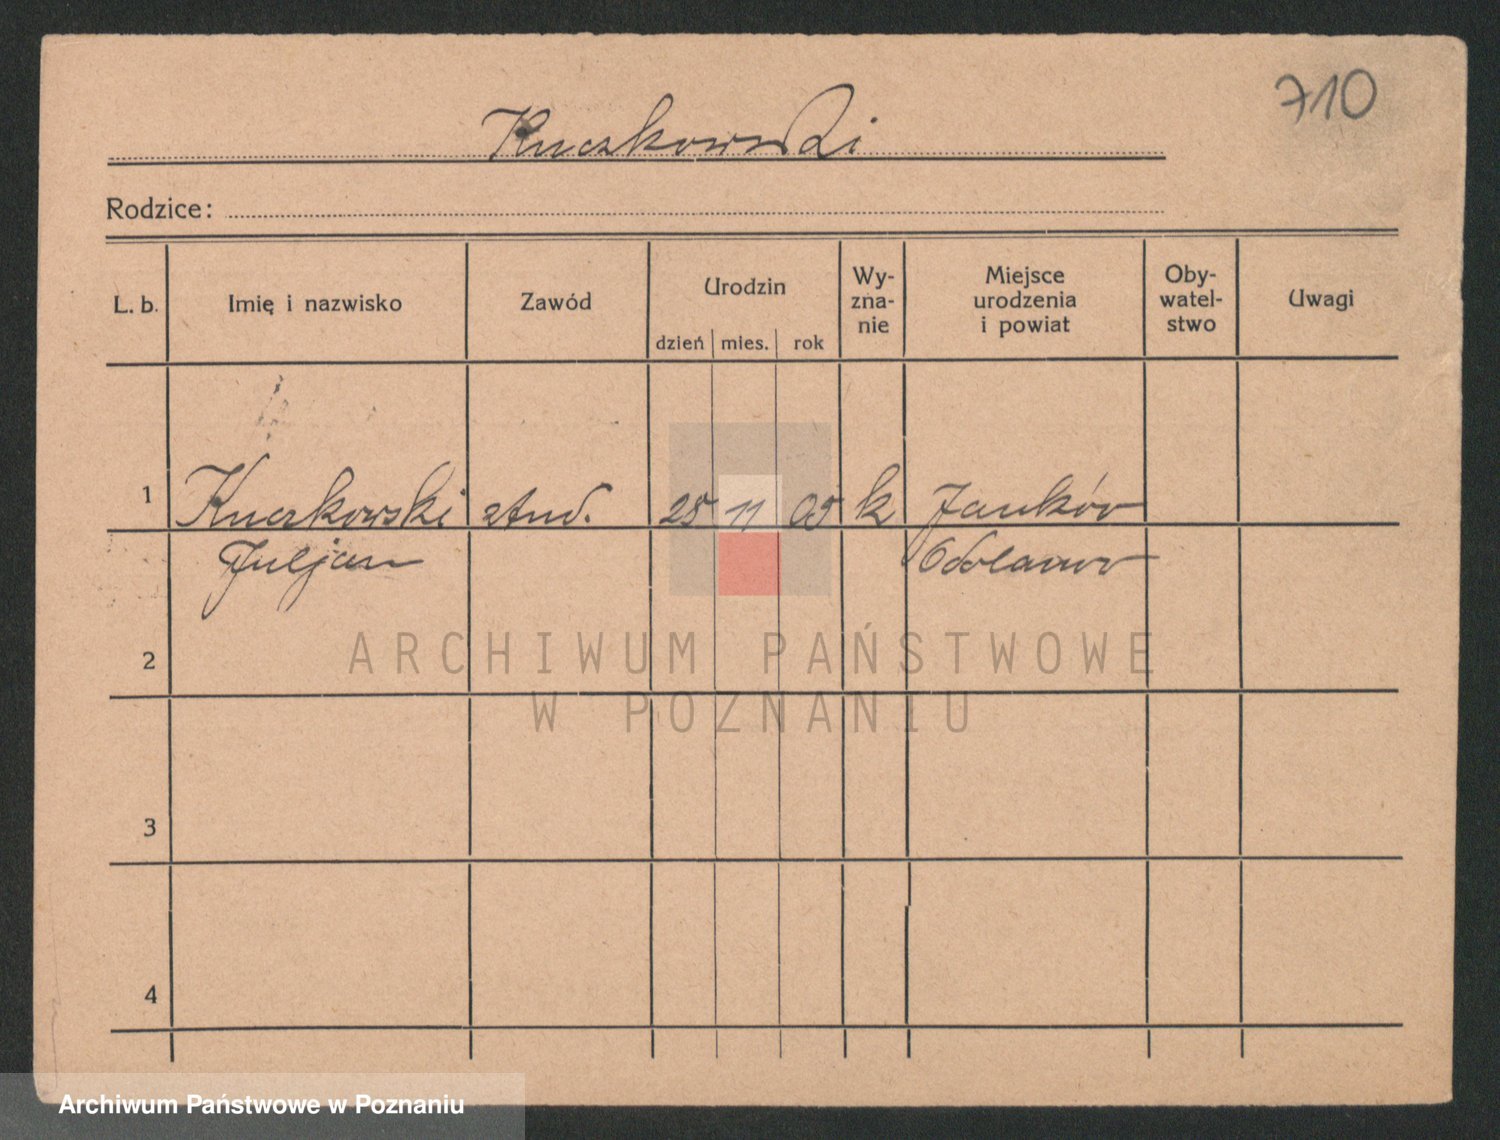 710
Kuczkowski
Rodzice:
L. b.
Imię i nazwisko
Zawód
Urodzin
dzień mies. rok
Wy-
zna-
nie
Miejsce
urodzenia
i powiat
Oby-
watel-
stwo
Uwagi
1 Kuczkowski stud. 25 11 05 k Janków
Juljan Odolanow
2
3
4
ARCHIWUM PAŃSTWOWE
W POZNANIU
Archiwum Państwowe w Poznaniu